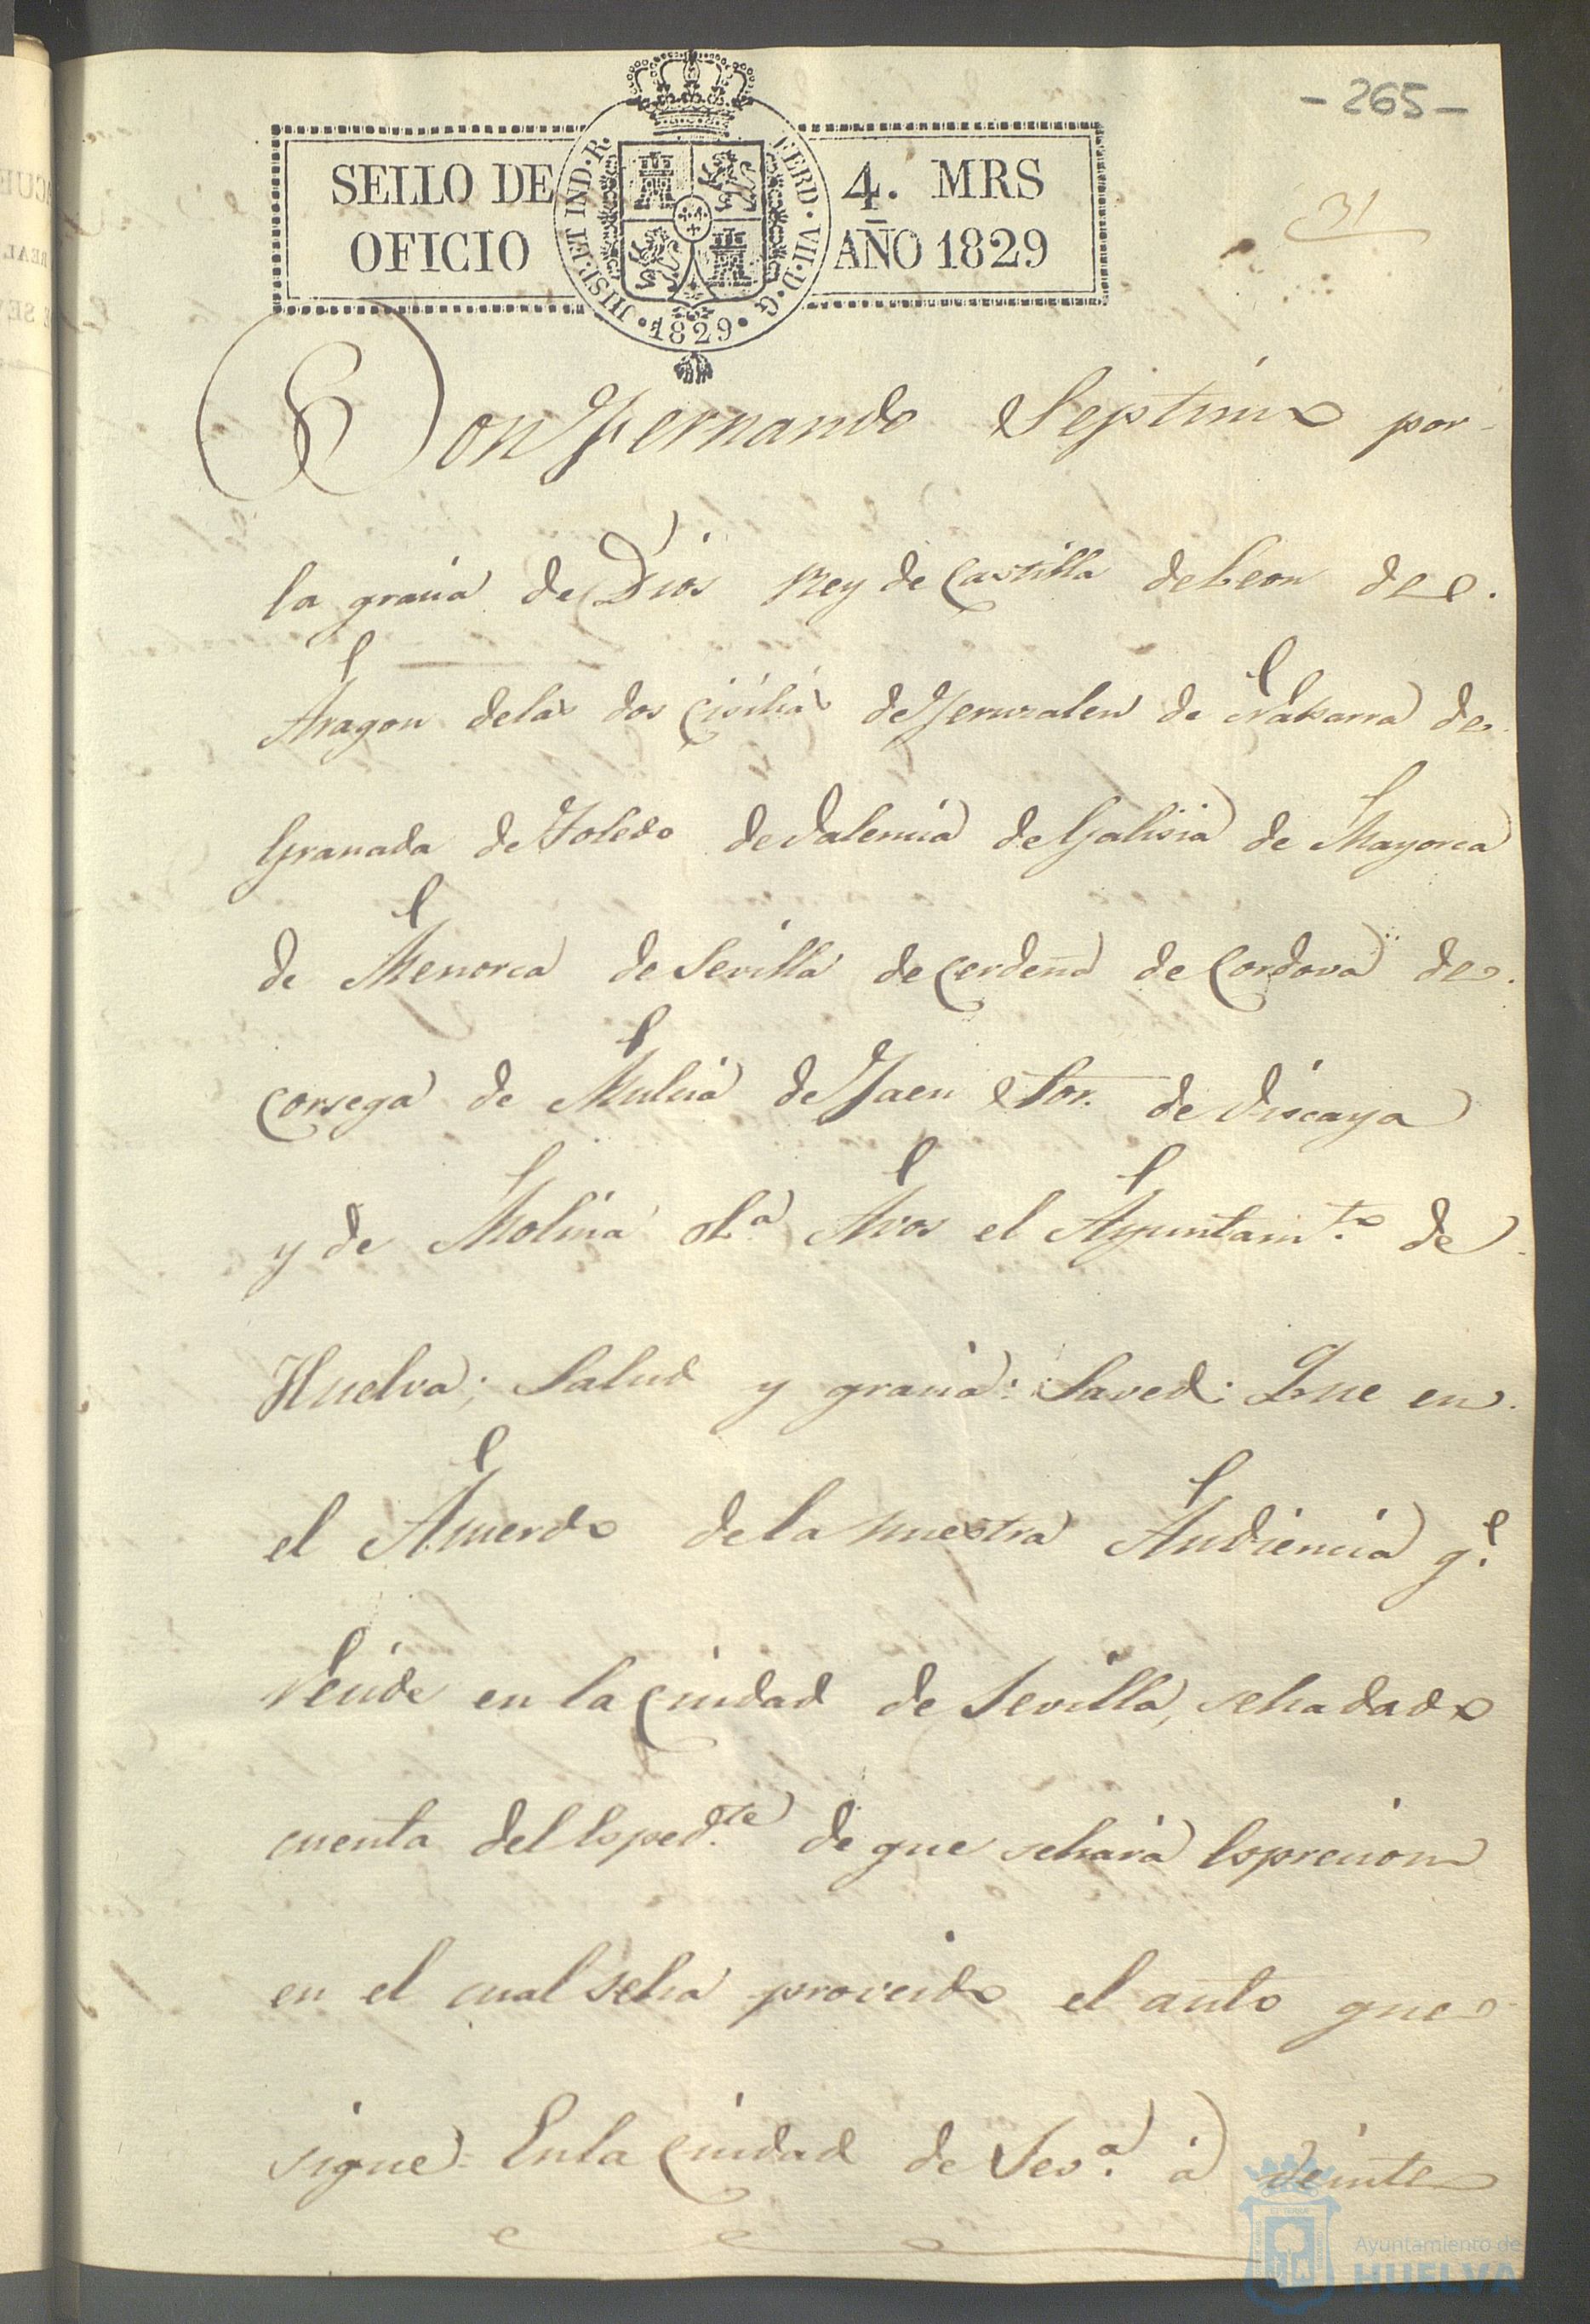 - 265 -
SELLO DE
OFICIO
HISP. ET IND. R.
FERD. VII. D. G.
· 1829 ·
4. MRS
AÑO 1829
31
Don Fernando Septimo por
la gracia de Dios Rey de Castilla de Leon de
Aragon delas dos Cicilias de Jerusalen de Nabarra de
Granada de Toledo de Valencia de Galisia de Mayorca
de Menorca de Sevilla de Cerdeña de Cordova de
Corsega de Mulcia de Jaen Sor. de Viscaya
y de Molina &.a A vos el Ayuntam.to de
Huelva; Salud y gracia: Saved: Que en
el Acuerdo dela nuestra Audiencia q.e
reside en la Ciudad de Sevilla, seha dado
cuenta del Esped.te de que sehará Espreción
en el cual seha proveido el auto que
sigue= Enla Ciudad de Sev.a á veinte
Ayuntamiento de
HUELVA